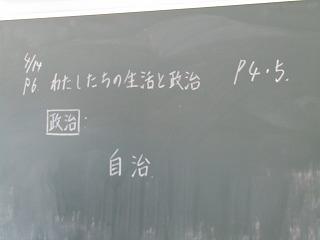 4/14
P6. わたしたちの生活と政治 P4・5.
政治:
自治